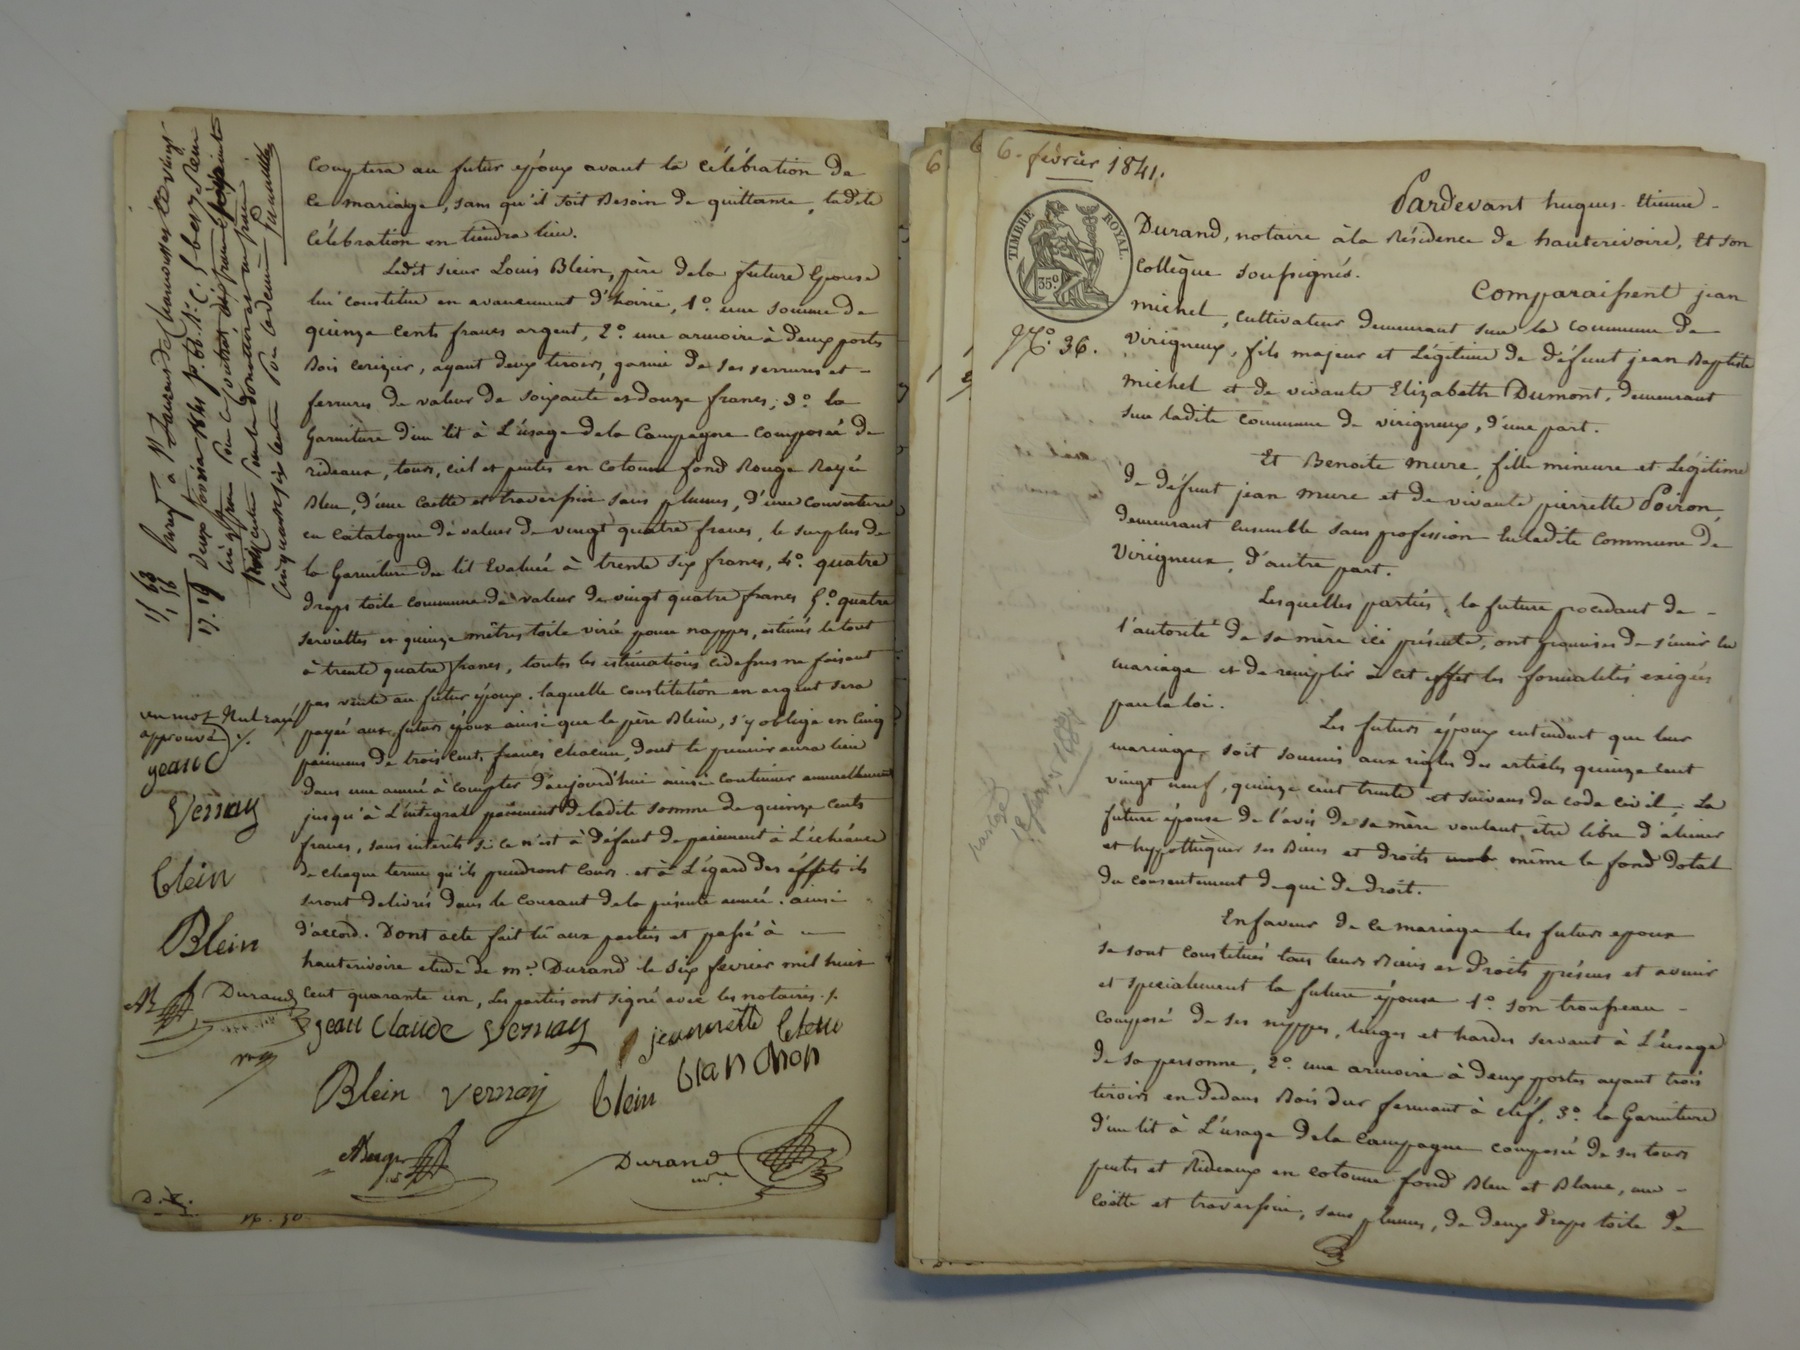 comptera au futur époux avant la célébration de
ce mariage, sans qu'il soit Besoin de quittance, ladite
célébration en tiendra lieu.
Ledit sieur Louis Blein, père dela future Epouse
lui constitue en avancement d'hoirie, 1º. une somme de
quinze cents francs argent, 2º. une armoire à deux ports
Bois cerizier, ayant deux tiroirs, garnie de ses serrures et -
ferrures de valeur de soixante et douze francs; 3º. la
Garniture d'un lit à L'usage dela Campagne composée de
rideaux, tours, ciel et pentes en cotonne fond Rouge Rayée
Bleu, d'une coette et traversin sans plumes, d'une couverture
en catalogne de valeur de vingt quatre francs, le surplus de
la Garniture du lit Evalué à trente six francs, 4º. quatre
draps toile commune de valeur de vingt quatre francs 5º. quatre
serviettes et quinze mêtres toile virée pour nappes, estimés le tout
à trente quatre francs, toutes les estimations cidessus ne faisant
pas vente au futur époux. laquelle constitution en argent sera
payée aux futurs époux ainsi que le père Blein, s'y oblige en cinq
paiemens de trois cents francs chacun, dont le premier aura lieu
dans une année à compter d'aujourd'hui ainsi continuer annuellement
jusqu'à L'intégral paiement de ladite somme de quinze cents
francs, sans intérêts si ce n'est à défaut de paiement à L'échéance
de chaque terme qu'ils prendront cours. et à L'égard des éffets ils
seront delivrés dans le courant dela présente année. ainsi
d'accord. Dont acte fait lû aux parties et passé à -
hauterivoire etude de me. Durand le six fevrier mil huit
cent quarante un, les parties ont signé avec les notaires ./.
jean Claude Vernay
jeannette blein
Blein Vernay blein blanchon
Durand
un mot Nul rayé
approuvé ./.
jean C
Vernay
blein
Blein
Durand
6. février 1841.
TIMBRE ROYAL.
35c
Nº. 36.
Pardevant hugues-Etienne -
Durand, notaire à la Résidence de hauterivoire, Et son
collègue soussignés.
Comparaissent jean
michel, cultivateur demeurant sur la commune de
virigneux, fils majeur et Légitime de défunt jean Baptiste
michel et de vivante Elizabeth Dumont, demeurant
sur ladite commune de virigneux, d'une part.
Et Benoite mure, fille mineure et Légitime
de défunt jean mure et de vivante pierrette Poiron,
demeurant Ensemble sans profession Enladite commune de
virigneux, d'autre part.
Lesquelles parties, la future procédant de -
l'autorité de sa mère ici présente, ont promises de s'unir en
mariage et de remplir à cet effet les formalités exigées
par la loi.
Les futurs époux entendent que leur
mariage soit soumis aux règles des articles quinze cent
vingt neuf, quinze cent trente et suivans du code civil. La
future épouse de l'avis de sa mère voulant être libre d'aliener
et hypothèquer ses Biens et droits même le fond Dotal
du consentement de qui de droit.
Enfaveur de ce mariage les futurs epoux
se sont constitués tous leurs Biens et Droits présens et avenir
et specialement la future épouse 1º. son trousseau -
composé de ses nippes, linges et hardes servant à L'usage
de sa personne, 2º. une armoire à deux portes ayant trois
tiroirs en dedans Bois dur fermant à clef, 3º. la Garniture
d'un lit à L'usage dela campagne composé de ses tours
pentes et Rideaux en cotonne fond Bleu et Blanc, une -
coëtte et traversin, sans plumes, de deux draps toile de